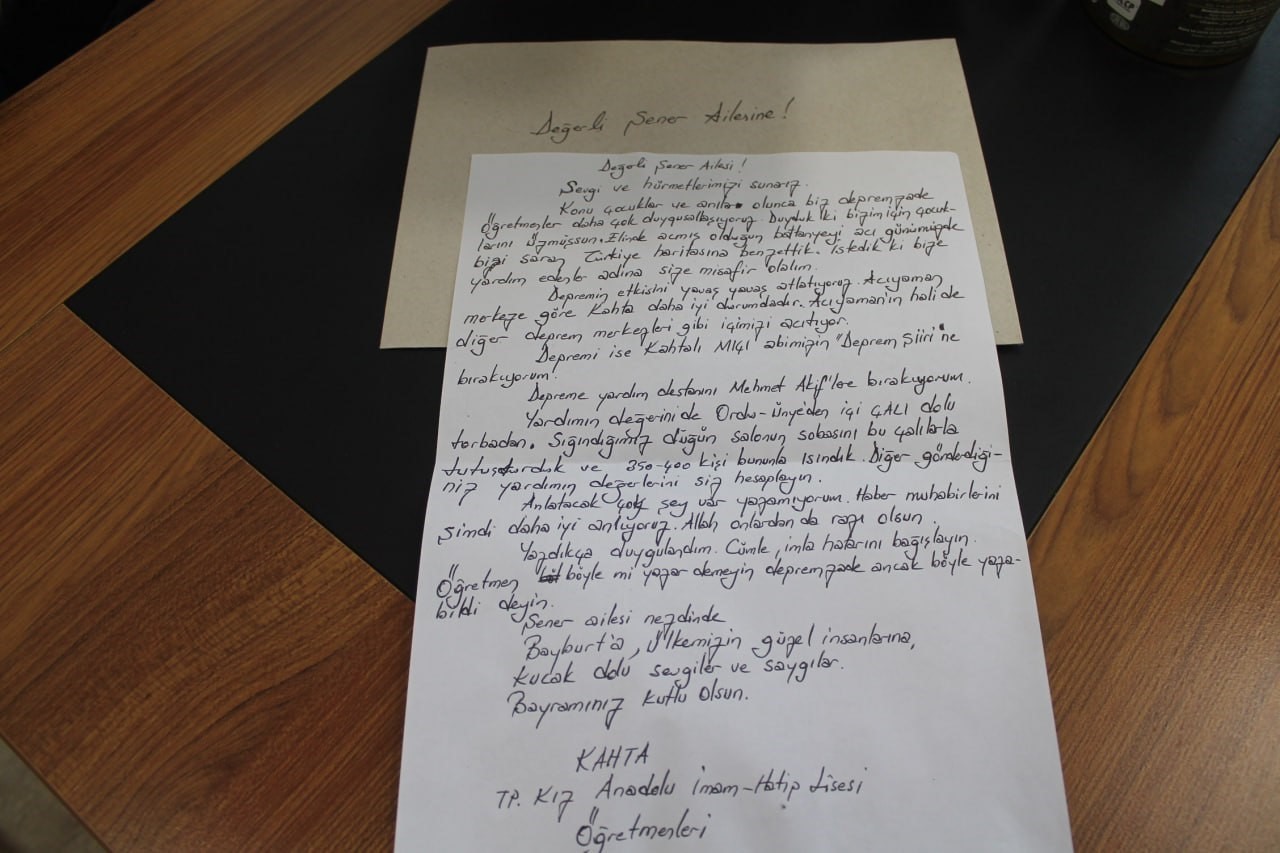 Değerli Şener Ailesine!
Değerli Şener Ailesi!
Sevgi ve hürmetlerimizi sunarız.
Konu çocuklar ve anılar olunca biz depremzede
Öğretmenler daha çok duygusallaşıyoruz. Duyduk ki bizim için çocuk-
larını üzmüşsün. Elinde açmış olduğun battaniyeyi acı günümüzde
bizi saran Türkiye haritasına benzettik. İstedik ki bize
yardım edenler adına size misafir olalım.
Depremin etkisini yavaş yavaş atlatıyoruz. Acıyaman
merkeze göre Kahta daha iyi durumdadır. Acıyaman'ın hali de
diğer deprem merkezleri gibi içimizi acıtıyor.
Depremi ise Kahtalı MIÇI abimizin "Deprem Şiiri"ne
bırakıyorum.
Depreme yardım destanını Mehmet Akif'lere bırakıyorum.
Yardımın değerini de Ordu-Ünye'den içi ÇALI dolu
torbadan. Sığındığımız düğün salonun sobasını bu çalılarla
tutuşturduk ve 350-400 kişi bununla ısındık. Diğer gönderdiği-
niz yardımın değerlerini siz hesaplayın.
Anlatacak çok şey var yazamıyorum. Haber muhabirlerini
şimdi daha iyi anlıyoruz. Allah onlardan da razı olsun.
Yazdıkça duygulandım. Cümle, imla hatarını bağışlayın.
Öğretmen böyle mi yazar demeyin depremzede ancak böyle yaza-
bildi deyin.
Şener ailesi nezdinde
Bayburt'a, Ülkemizin güzel insanlarına,
Kucak dolu sevgiler ve saygılar.
Bayramınız Kutlu Olsun.
KAHTA
TP. Kız Anadolu İmam-Hatip Lisesi
Öğretmenleri